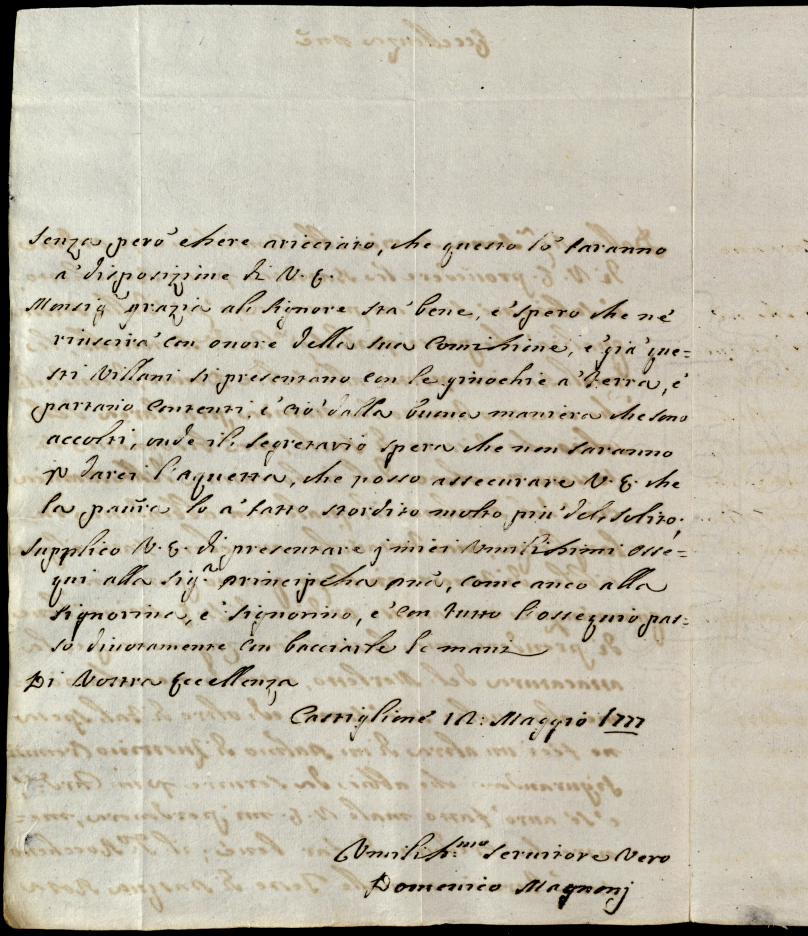 senza però essere aricciato, che questo lo' faranno
a' disposizione di V. E.
Monsig.r grazia al Signore sta' bene, e' spero che ne'
riuscira' con onore della sua Comissione, e' gia' que=
sti Villani si presentano con le ginochie a' terra, e'
partano contenti, e' cio' dalla buona maniera che sono
accolti, onde il segretario spera che non saranno
p darci l'aquetta, che posso assecurare V. E. che
la paura lo a' fatto stordito molto piu' del solito;
Supplico V. E. di presentare j miei Vmilissimi osse=
qui alla Sig.ra Principessa pnã, come anco alla
Signorina, e' Signorino, e' con tutto l'ossequio pas=
so divotamente con bacciarle le mani
Di Vostra Eccellenza
Castiglione 12: Maggio 1777
Vmiliss.mo Servitore Vero
Domenico Magnonj